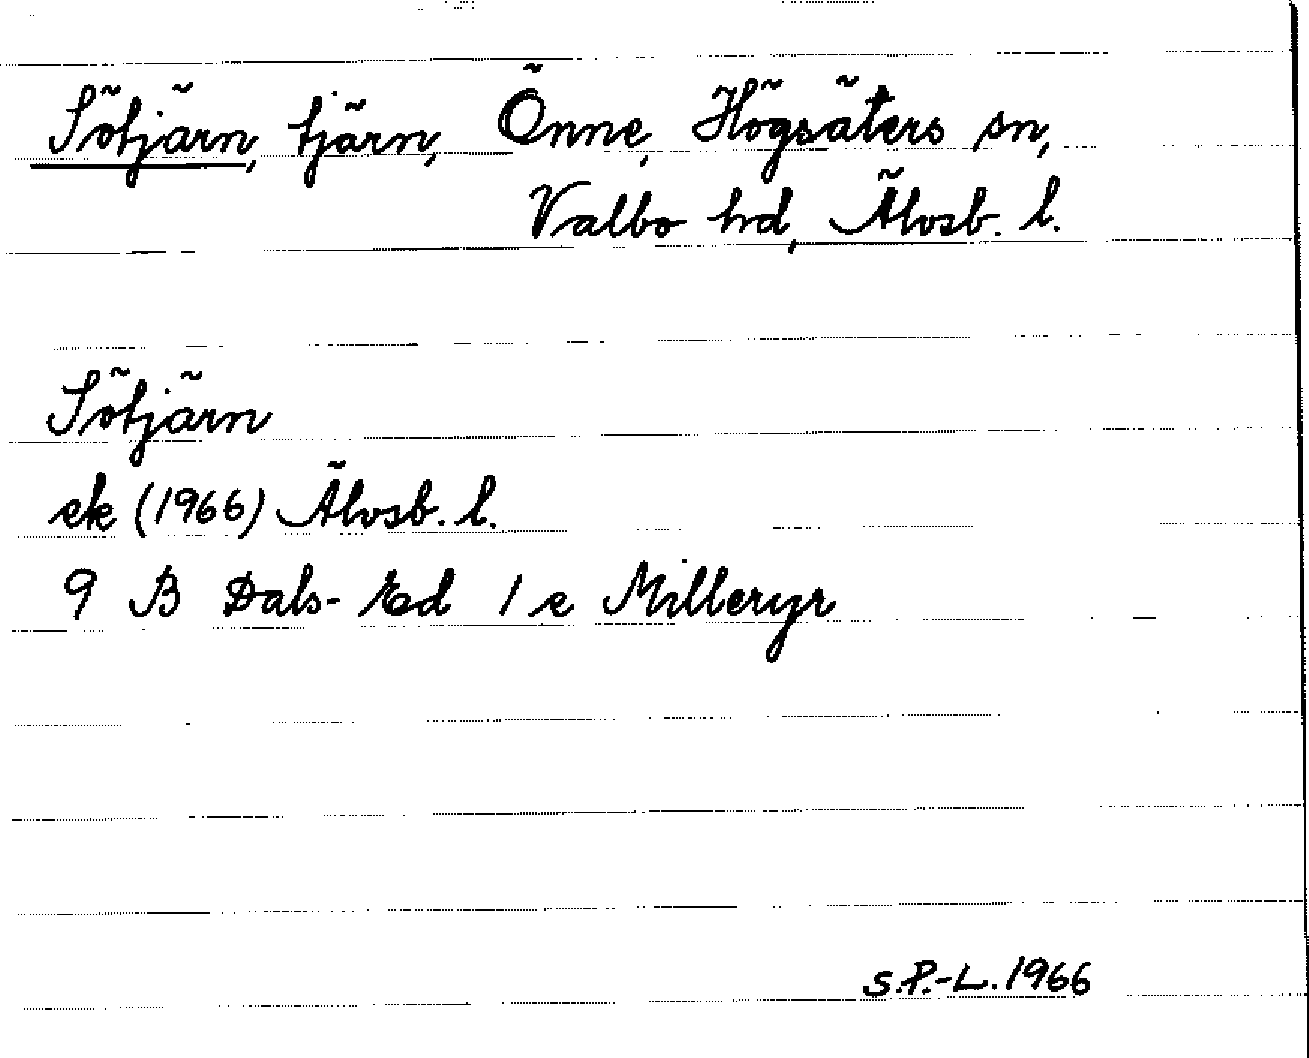 Sötjärn, tjärn, Önne, Högsäters sn,
Valbo hd, Älvsb. l.
Sötjärn
ek (1966) Älvsb. l.
9 B Dals-Ed 1 e Milleryr
S.P.-L. 1966